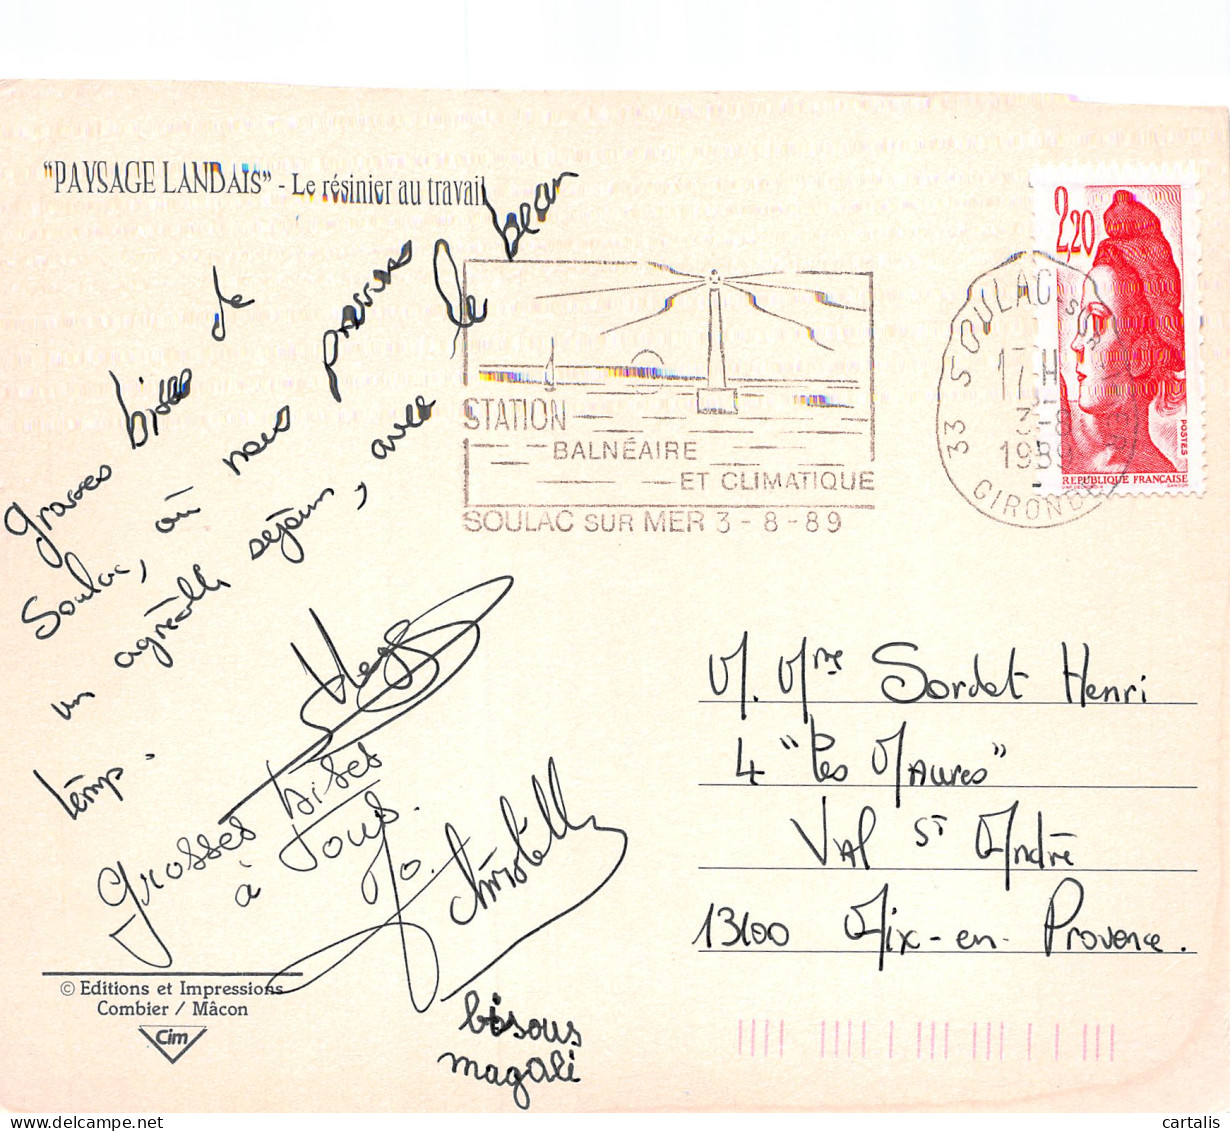 "PAYSAGE LANDAIS" - Le résinier au travail
grosses bises de
Soulac, où nous passons
un agréable séjour, avec le beau
temp.
Grosses bises
à Tous.
Jo.
Christelle
bisous
magali
2,20
POSTES
REPUBLIQUE FRANCAISE
33 SOULAC SUR MER
17 H
3-8
1989
GIRONDE
STATION
BALNÉAIRE
ET CLIMATIQUE
SOULAC SUR MER 3-8-89
M. Mme Sordet Henri
4 "Les Maures"
Val St André
13100 Aix-en-Provence.
© Editions et Impressions
Combier / Mâcon
Cim
cartalis